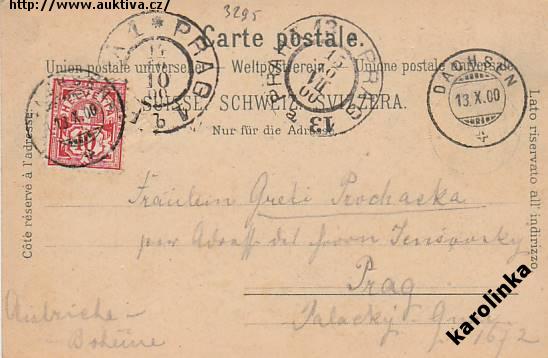 http://www.auktiva.cz/
3295
Carte postale.
Union postale universelle. Weltpostverein. Unione postale universale
SUISSE. SCHWEIZ. SVIZZERA.
Nur für die Adresse.
Côté réservé à l'adresse.
Lato riservato all' indirizzo.
PRAGA
PRAG
13
DACHSEN
13.X.00
13.X.00
10
Fräulein Greti Prochaska
per
Prag
Palacký
1672
Autriche-
Bohême
karolinka